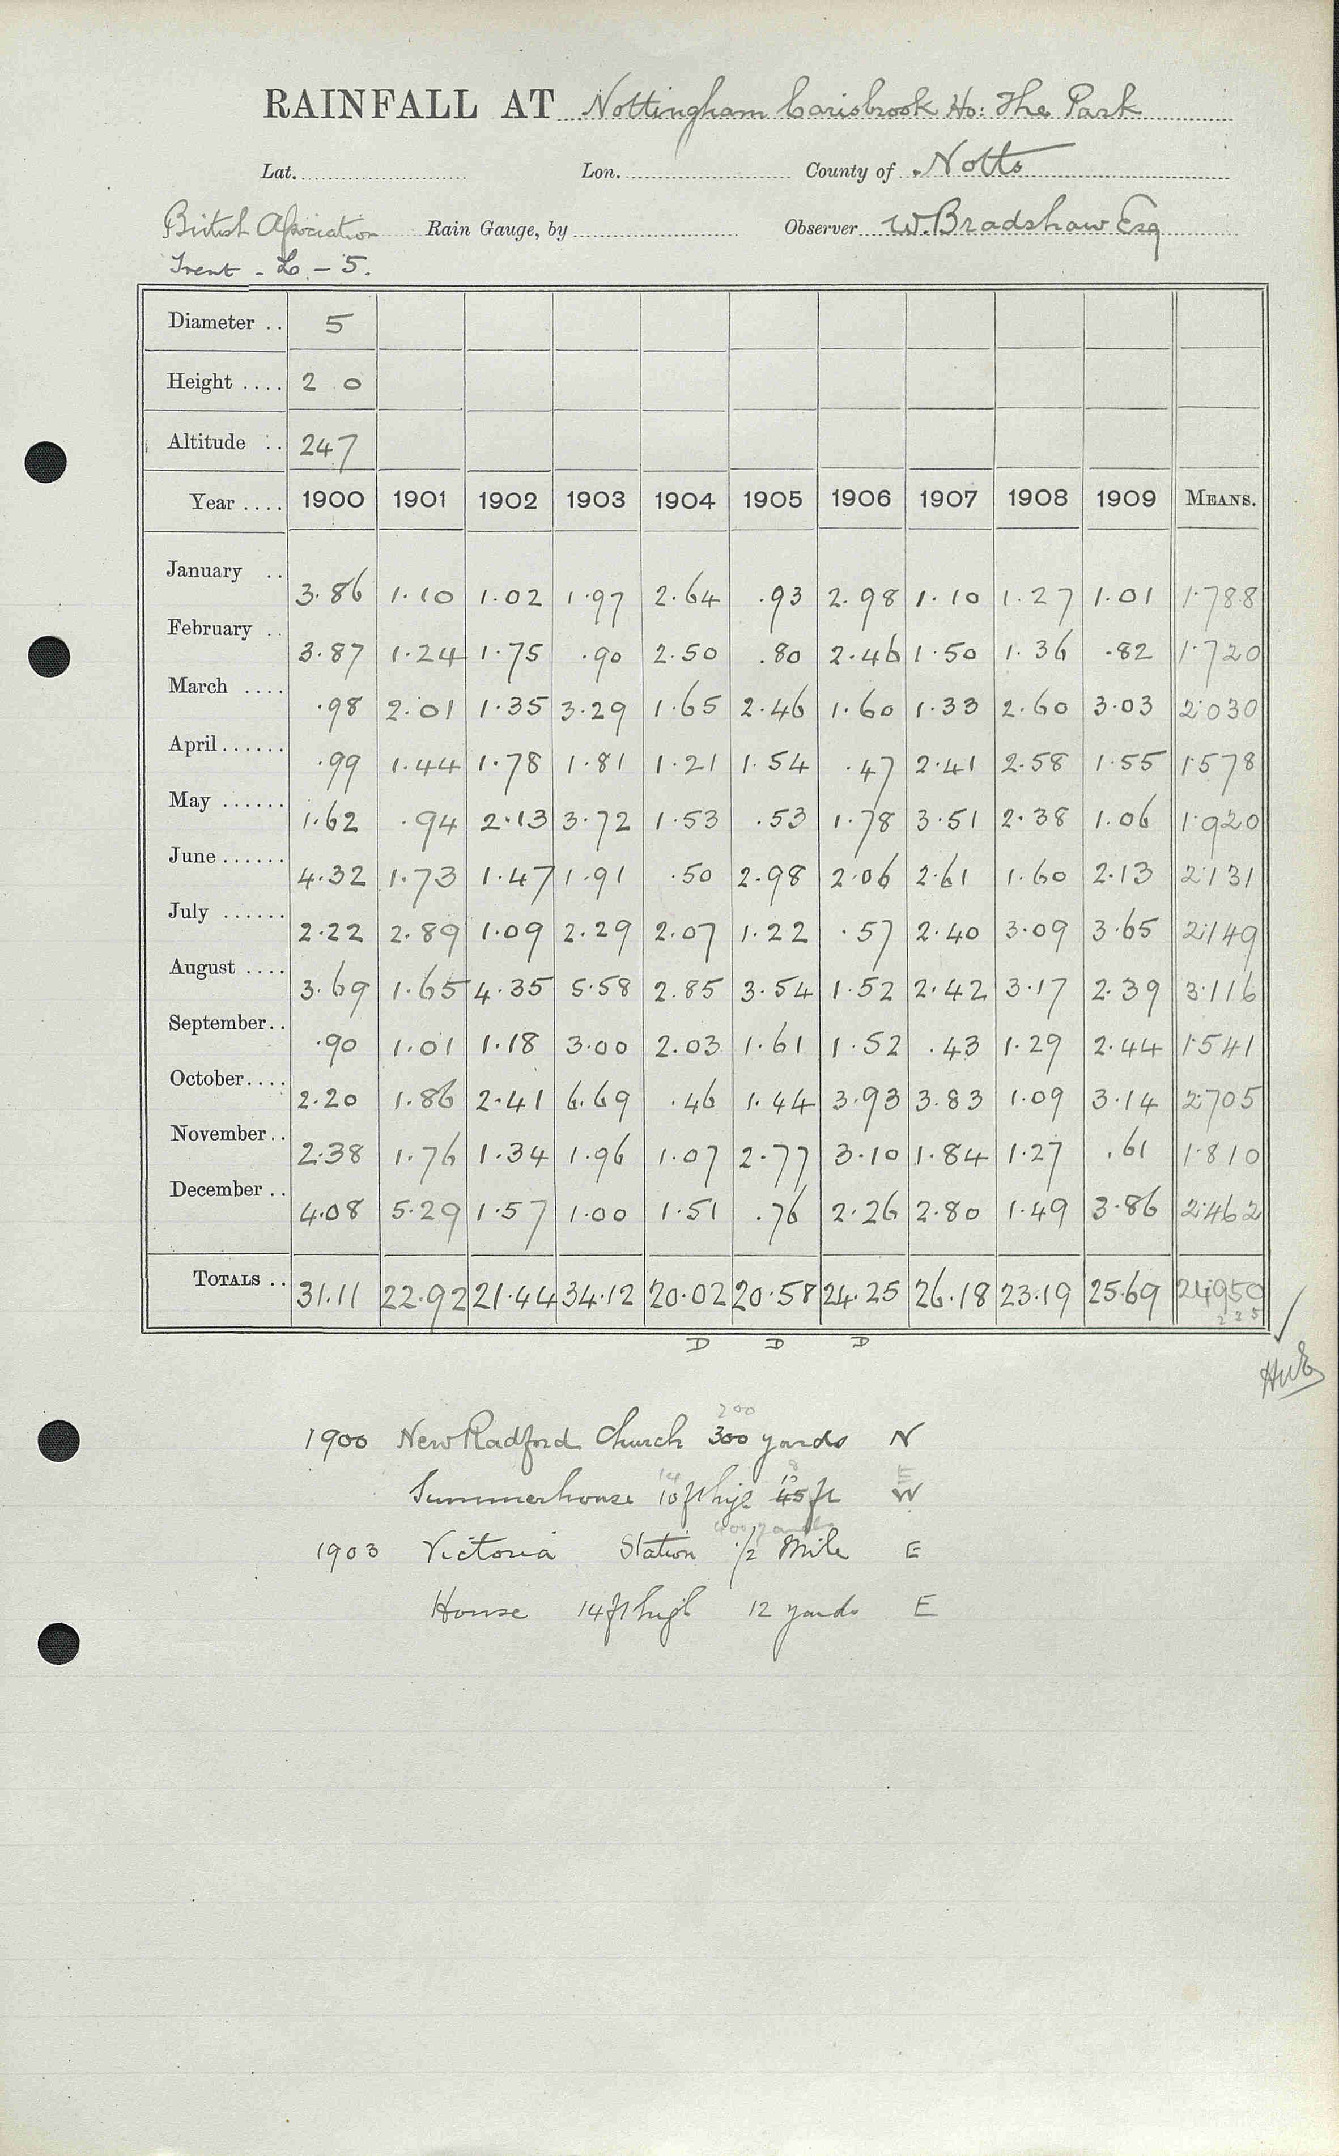 RAINFALL AT Nottingham Carisbrook Ho: The Park
Lat. Lon. County of Notts
British Association Rain Gauge, by Observer W. Bradshaw Esq
Trent - L - 5.
Diameter .. 5
Height .... 2 0
Altitude .. 247
Year .... 1900 1901 1902 1903 1904 1905 1906 1907 1908 1909 MEANS.
January .. 3.86 1.10 1.02 1.97 2.64 .93 2.98 1.10 1.27 1.01 1.788
February .. 3.87 1.24 1.75 .90 2.50 .80 2.46 1.50 1.36 .82 1.720
March .... .98 2.01 1.35 3.29 1.65 2.46 1.60 1.33 2.60 3.03 2.030
April ...... .99 1.44 1.78 1.81 1.21 1.54 .47 2.41 2.58 1.55 1.578
May ...... 1.62 .94 2.13 3.72 1.53 .53 1.78 3.51 2.38 1.06 1.920
June ...... 4.32 1.73 1.47 1.91 .50 2.98 2.06 2.61 1.60 2.13 2.131
July ...... 2.22 2.89 1.09 2.29 2.07 1.22 .57 2.40 3.09 3.65 2.149
August .... 3.69 1.65 4.35 5.58 2.85 3.54 1.52 2.42 3.17 2.39 3.116
September.. .90 1.01 1.18 3.00 2.03 1.61 1.52 .43 1.29 2.44 1.541
October.... 2.20 1.86 2.41 6.69 .46 1.44 3.93 3.83 1.09 3.14 2.705
November.. 2.38 1.76 1.34 1.96 1.07 2.77 3.10 1.84 1.27 .61 1.810
December .. 4.08 5.29 1.57 1.00 1.51 .76 2.26 2.80 1.49 3.86 2.462
TOTALS .. 31.11 22.92 21.44 34.12 20.02 20.58 24.25 26.18 23.19 25.69 24.950
D D D
200
1900 New Radford Church 300 yards N
14 E
Summerhouse 10 ft high 45 ft W
400 yards
1903 Victoria Station 1/2 Mile E
House 14 ft high 12 yards E